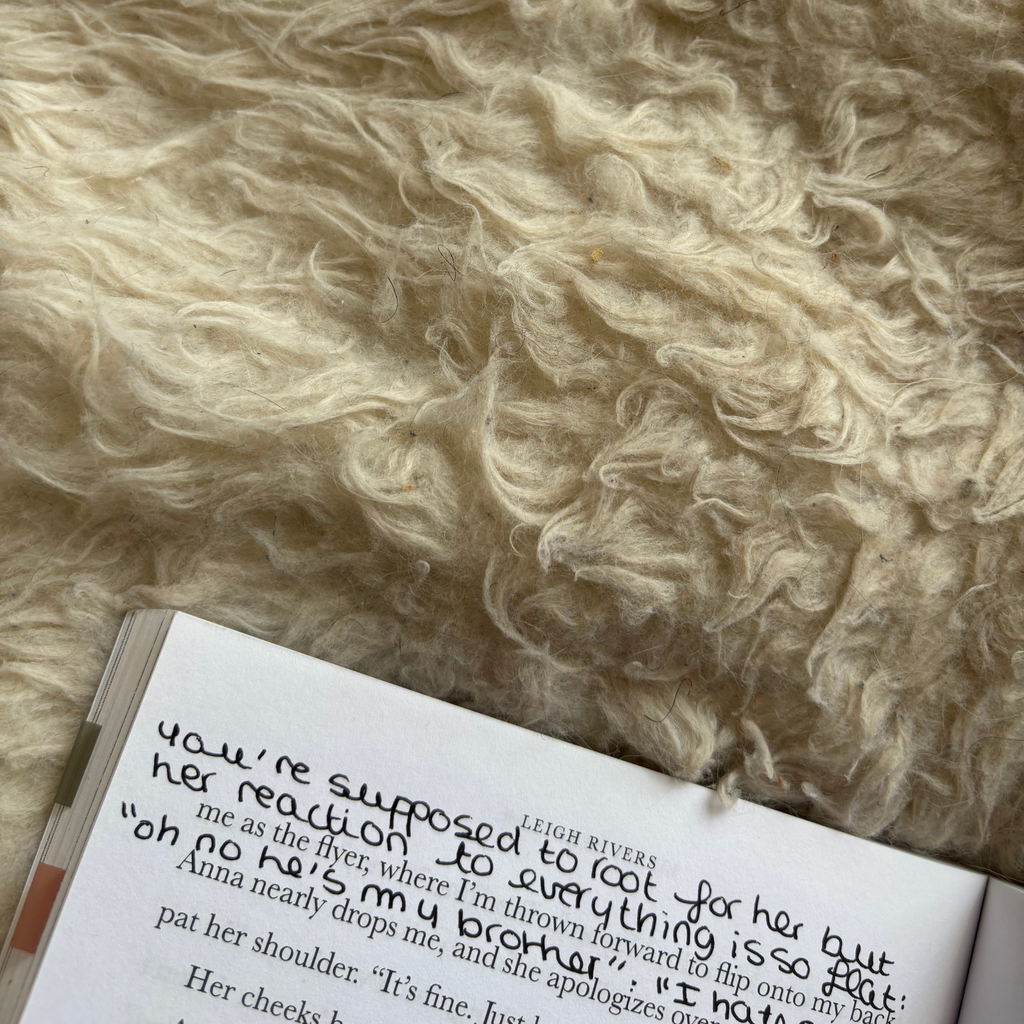 you're supposed to root for her but
her reaction to everything is so flat:
"oh no he's my brother"; "I hate
LEIGH RIVERS
me as the flyer, where I'm thrown forward to flip onto my back
Anna nearly drops me, and she apologizes over
pat her shoulder. "It's fine. Just
Her cheeks